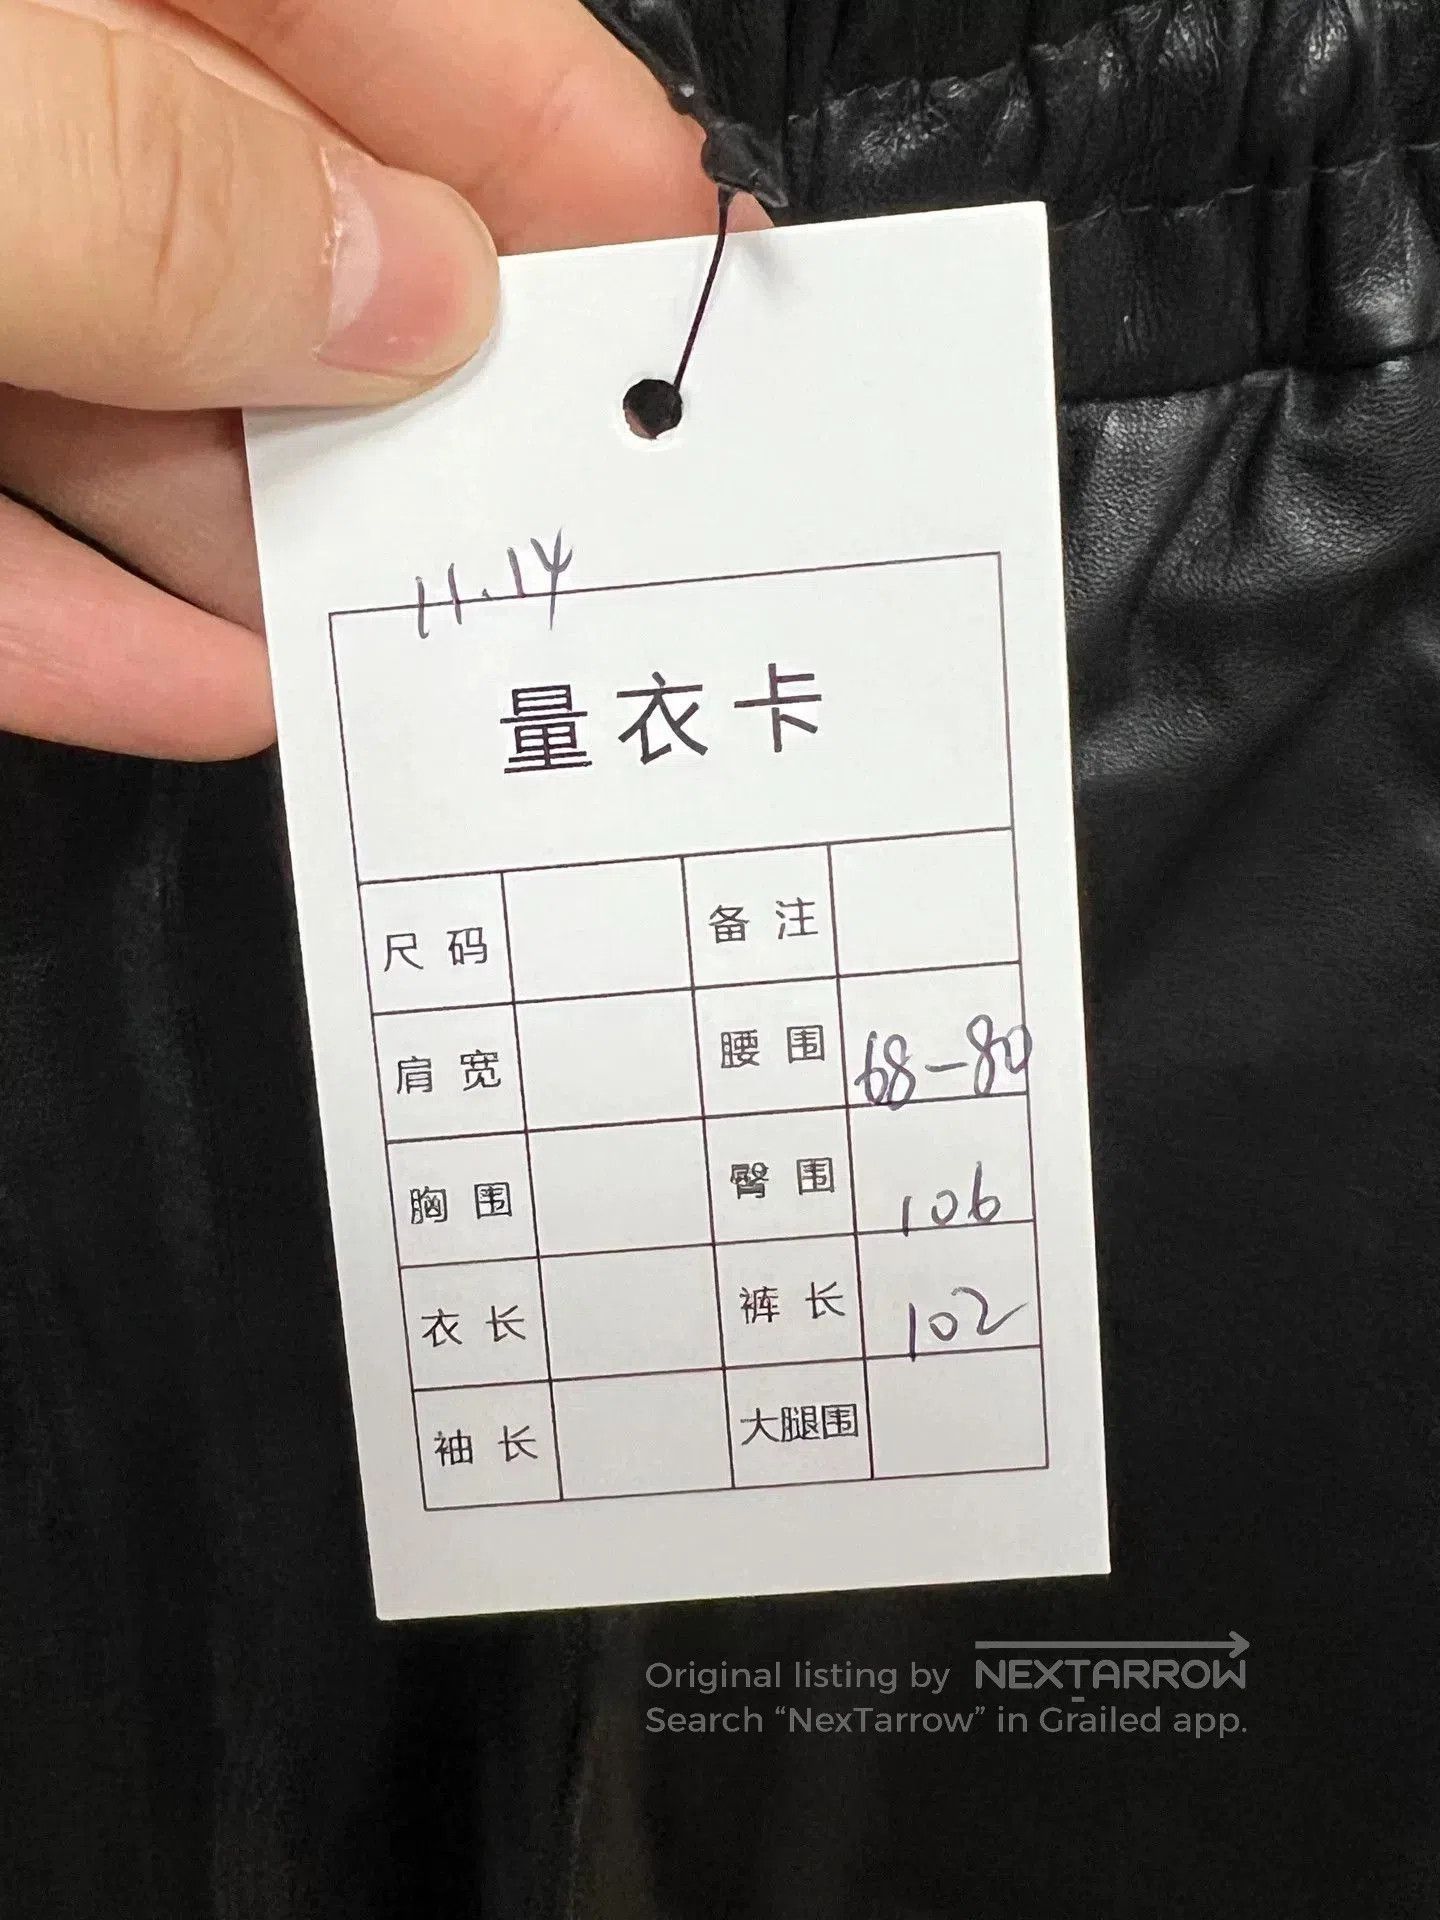 11.14
量衣卡
尺码 备注
肩宽 腰围 68-80
胸围 臀围 106
衣长 裤长 102
袖长 大腿围
Original listing by NEXTARROW
Search “NexTarrow” in Grailed app.